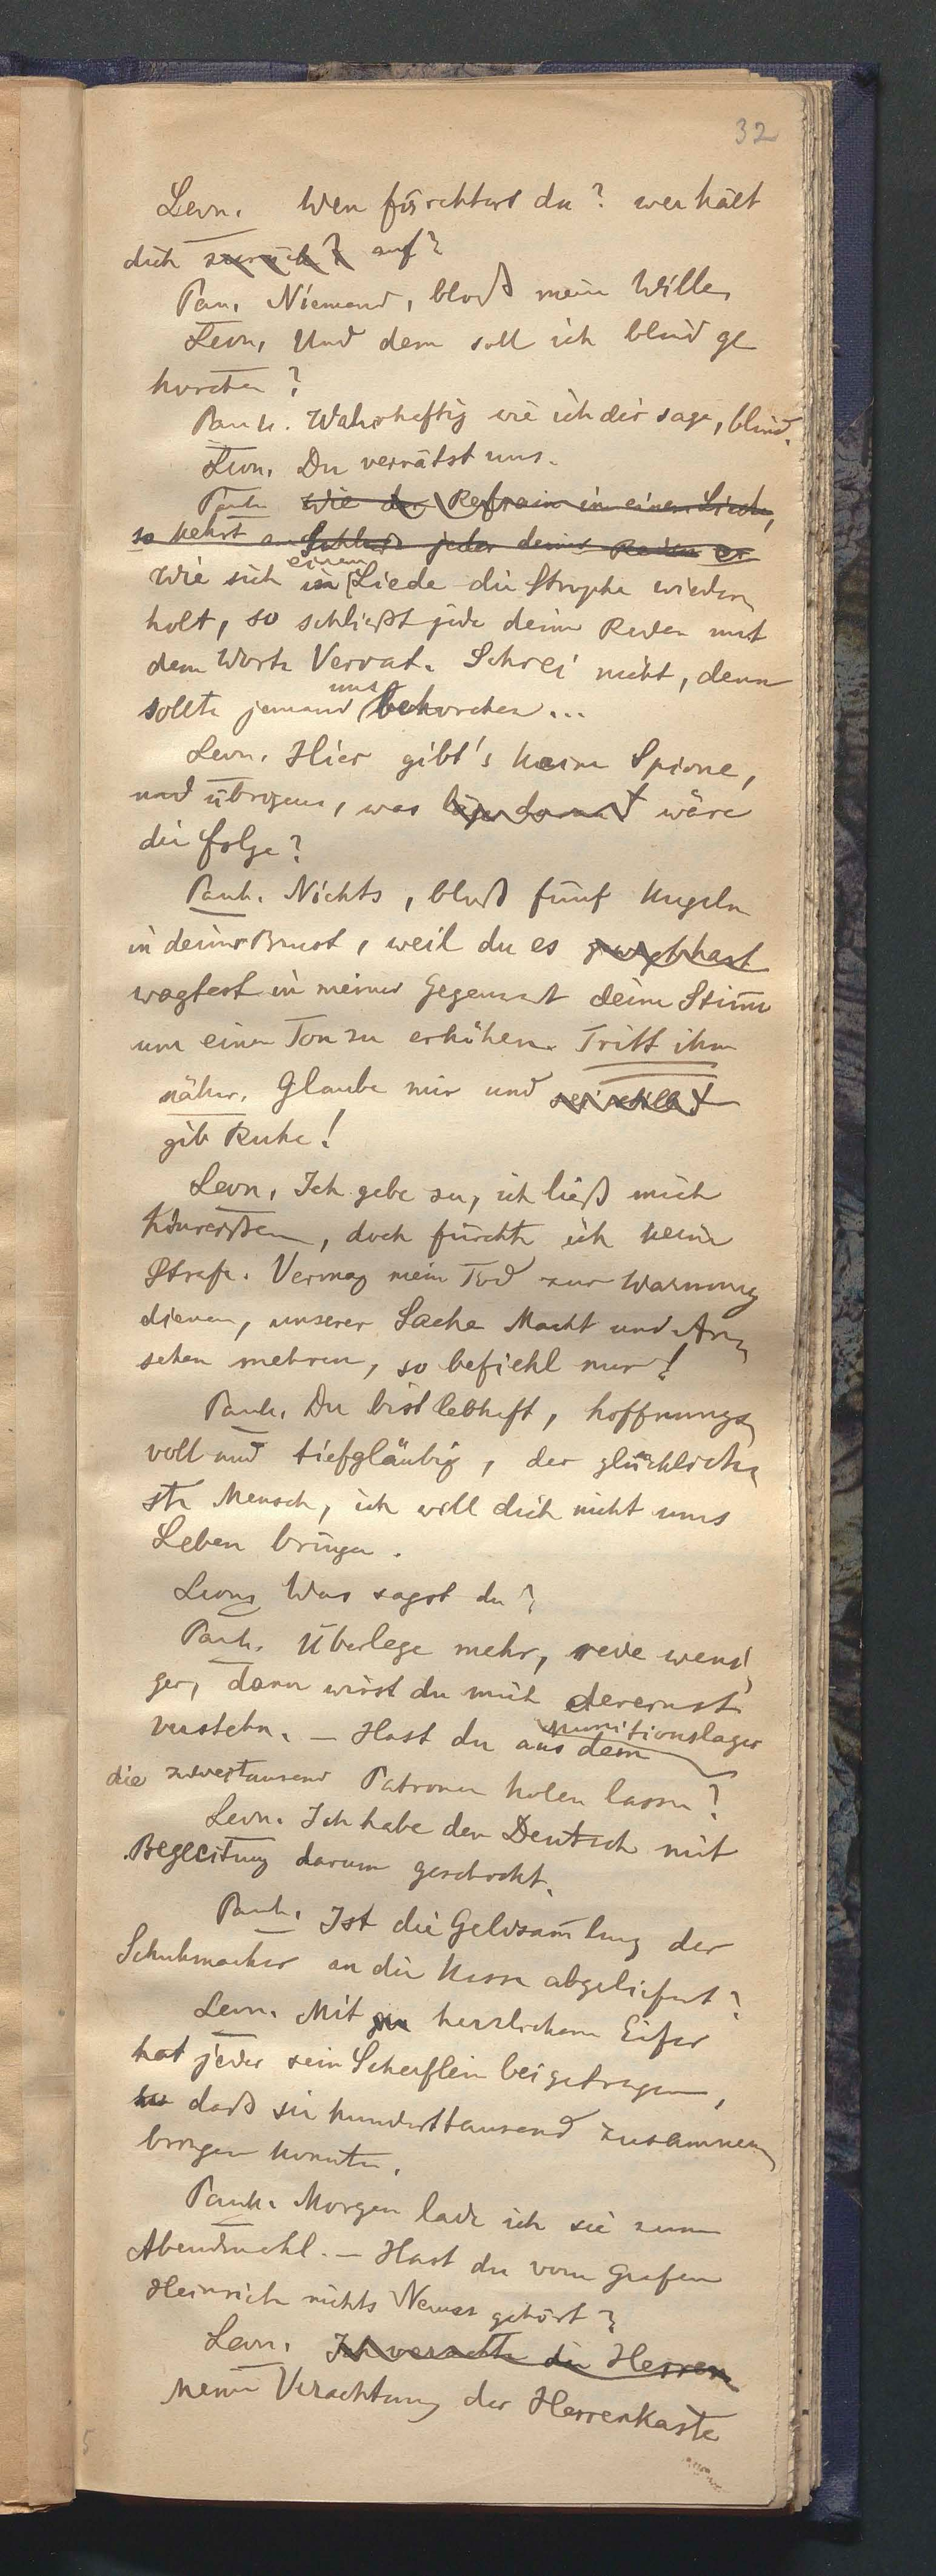 32
Leon. Wen fürchtest du? wer hält
dich zurück? auf?
Pan. Niemand, bloß mein Wille
Leon. Und dem soll ich blind ge
horchen?
Pank. Wahrhaftig wie ich dir sage, blind.
Leon. Du verrätst uns.
Pank. Wie der Refrain in einem Liede,
so kehrt am Schluß jeder deiner Reden er
Wie sich in einem Liede die Strophe wieder
holt, so schließt jede deine Reden mit
dem Worte Verrat. Schrei nicht, denn
sollte jemand uns behorchen...
Leon. Hier gibt's keine Spione,
und übrigens, was wäre
die Folge?
Pank. Nichts, bloß fünf Kugeln
in deiner Brust, weil du es gewagt hast
wagtest in meiner Gegenwart deine Stimme
um einen Ton zu erhöhen. Tritt ihm
näher. Glaube mir und sei still!
gib Ruhe!
Leon. Ich gebe zu, ich ließ mich
hinreißen, doch fürchte ich keine
Strafe. Vermag mein Tod zur Warnung
dienen, unserer Sache Macht und An
sehen mehren, so befiehl nur!
Pank. Du bist lebhaft, hoffnungs
voll und tiefgläubig, der glücklich
ste Mensch, ich will dich nicht ums
Leben bringen.
Leon. Was sagst du?
Pank. Überlege mehr, rede weni
ger, dann wirst du mich dereinst
verstehn. – Hast du aus dem Munitionslager
die zweitausend Patronen holen lassen?
Leon. Ich habe den Deutsch mit
Begleitung darum geschickt.
Pank. Ist die Geldsam̅lung der
Schuhmacher an die Kasse abgeliefert?
Leon. Mit herzlichem Eifer
hat jeder sein Scherflein beigetragen,
so daß sie hunderttausend zusammen
bringen konnten.
Pank. Morgen lade ich sie zum
Abendmahl. – Hast du vom Grafen
Heinrich nichts Neues gehört?
Leon. Ich verachte die Herren
Meine Verachtung der Herrenkaste
5